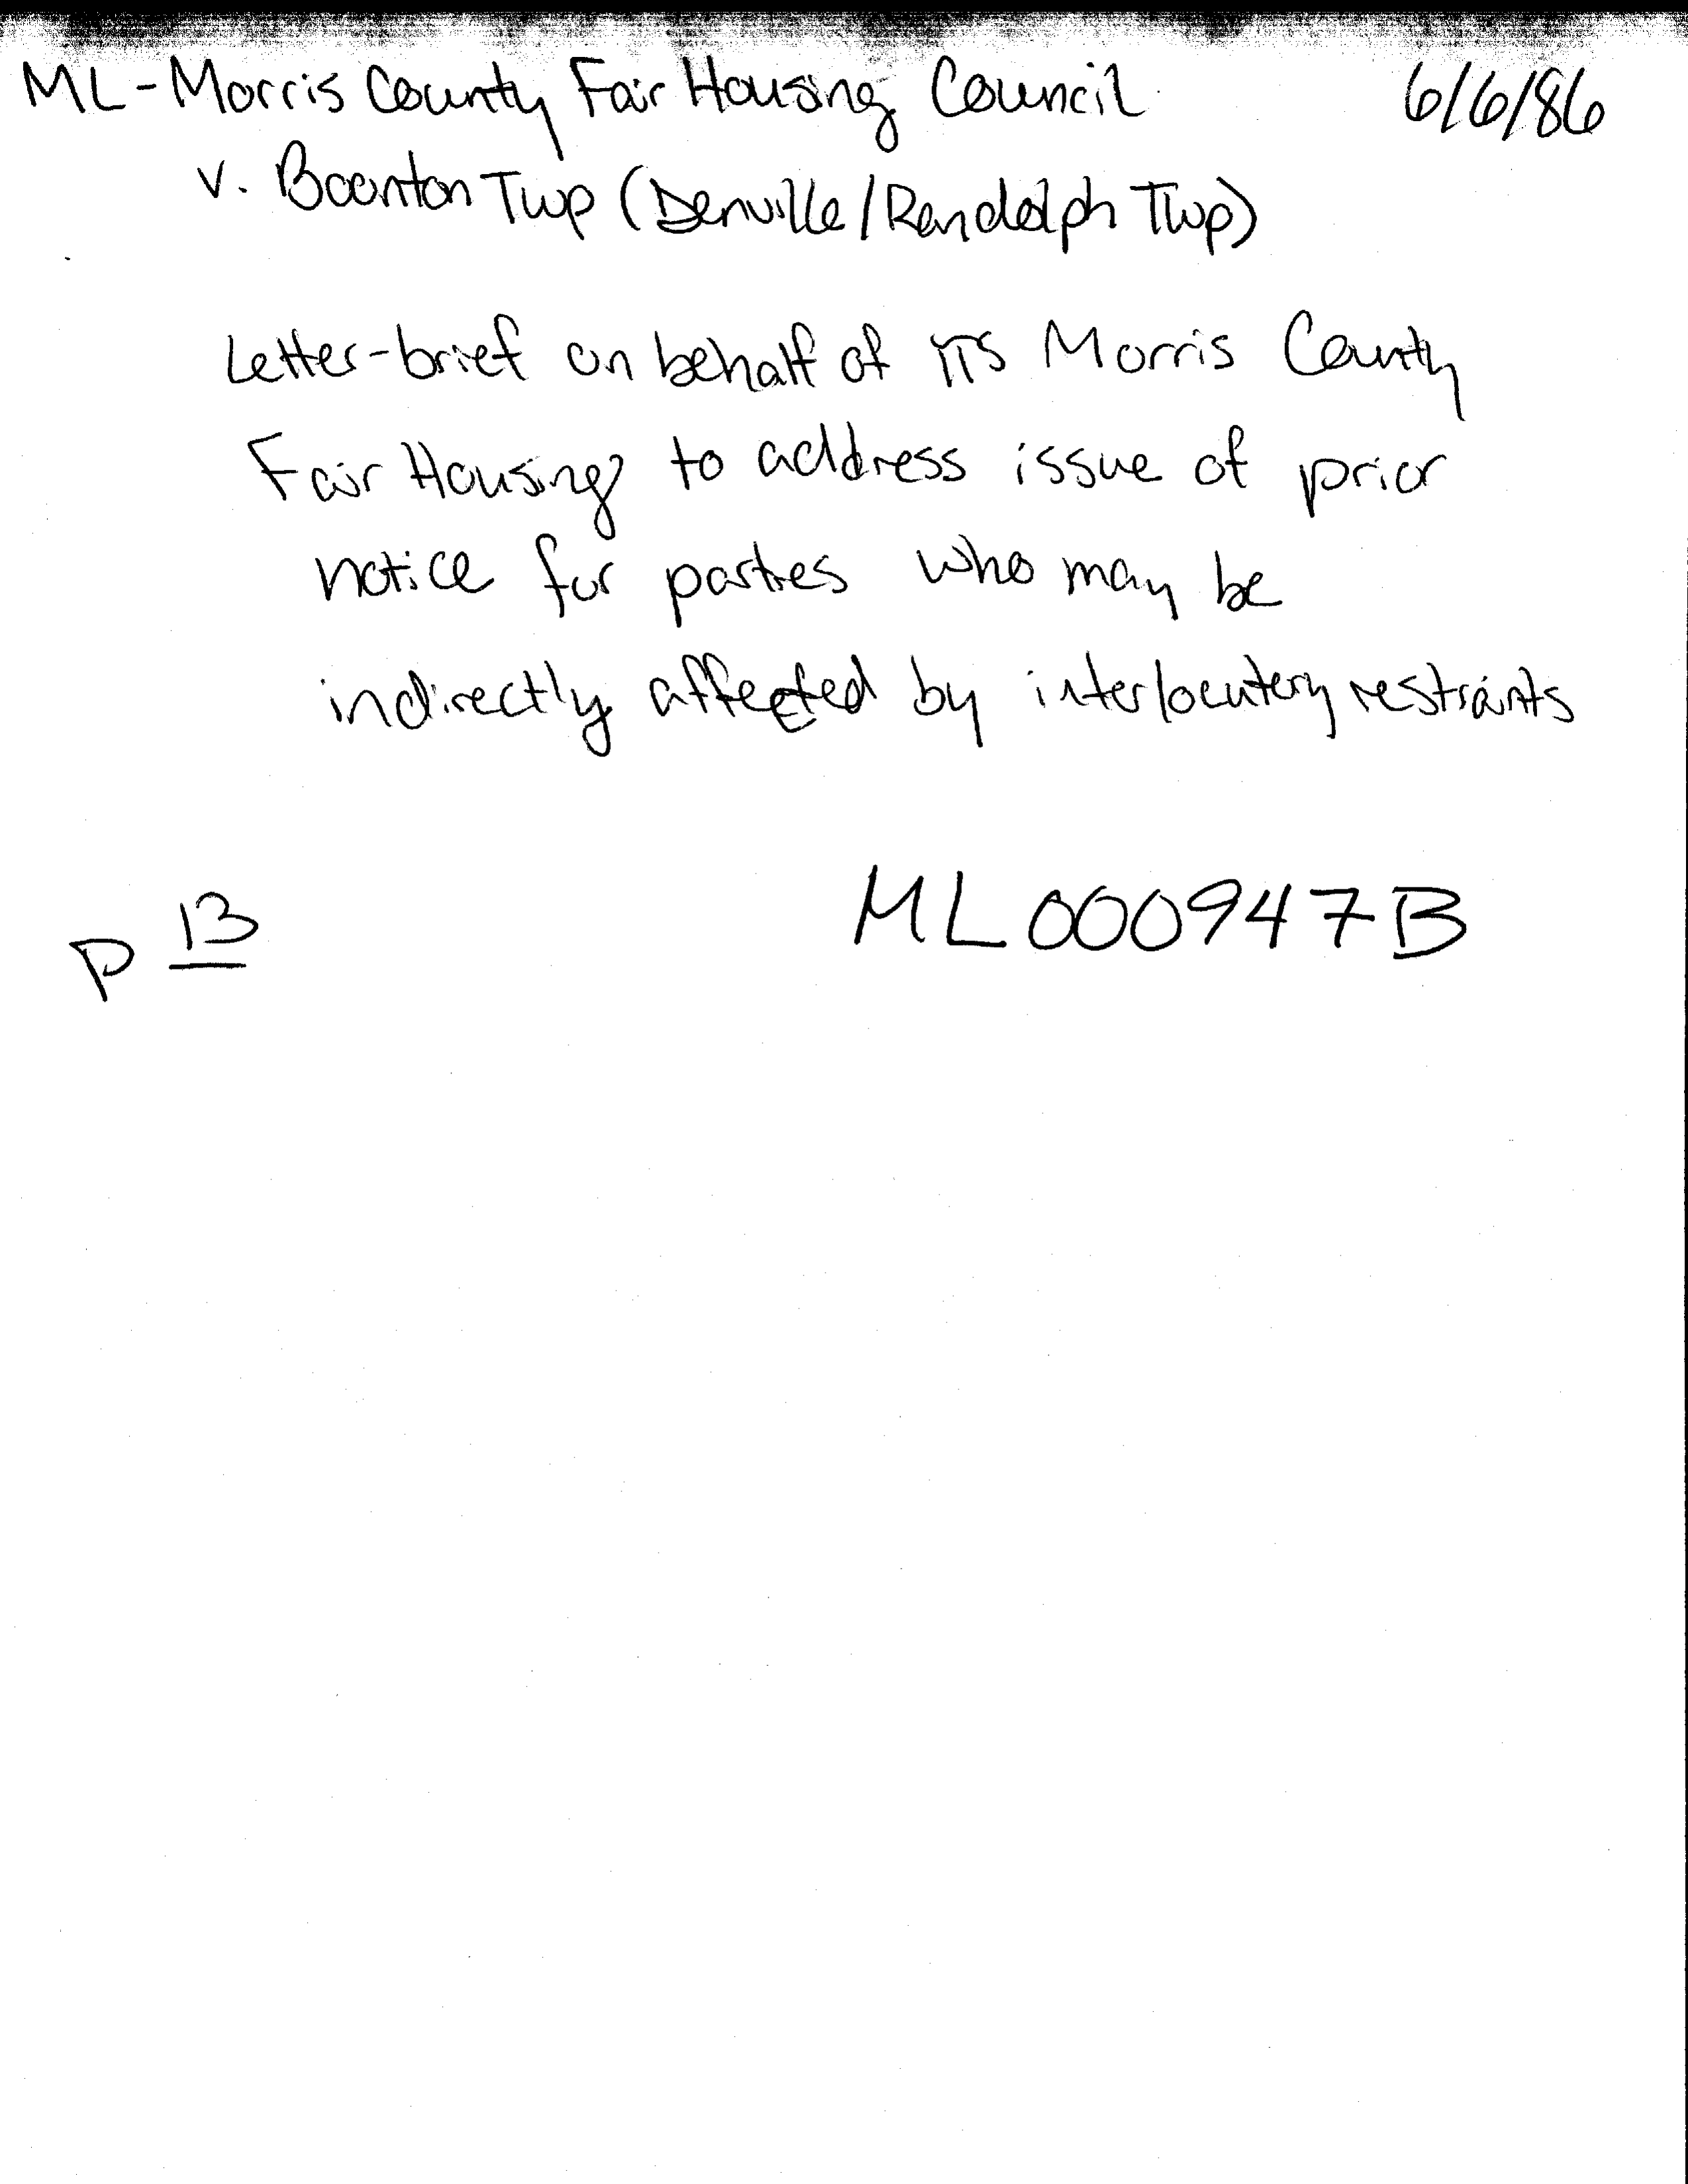 ML - Morris County Fair Housing Council 6/6/86
v. Boonton Twp (Denville/Randolph Twp)
Letter-brief on behalf of πs Morris County
Fair Housing to address issue of prior
notice for parties who may be
indirectly affected by interlocutory restraints
p 13
ML000947B